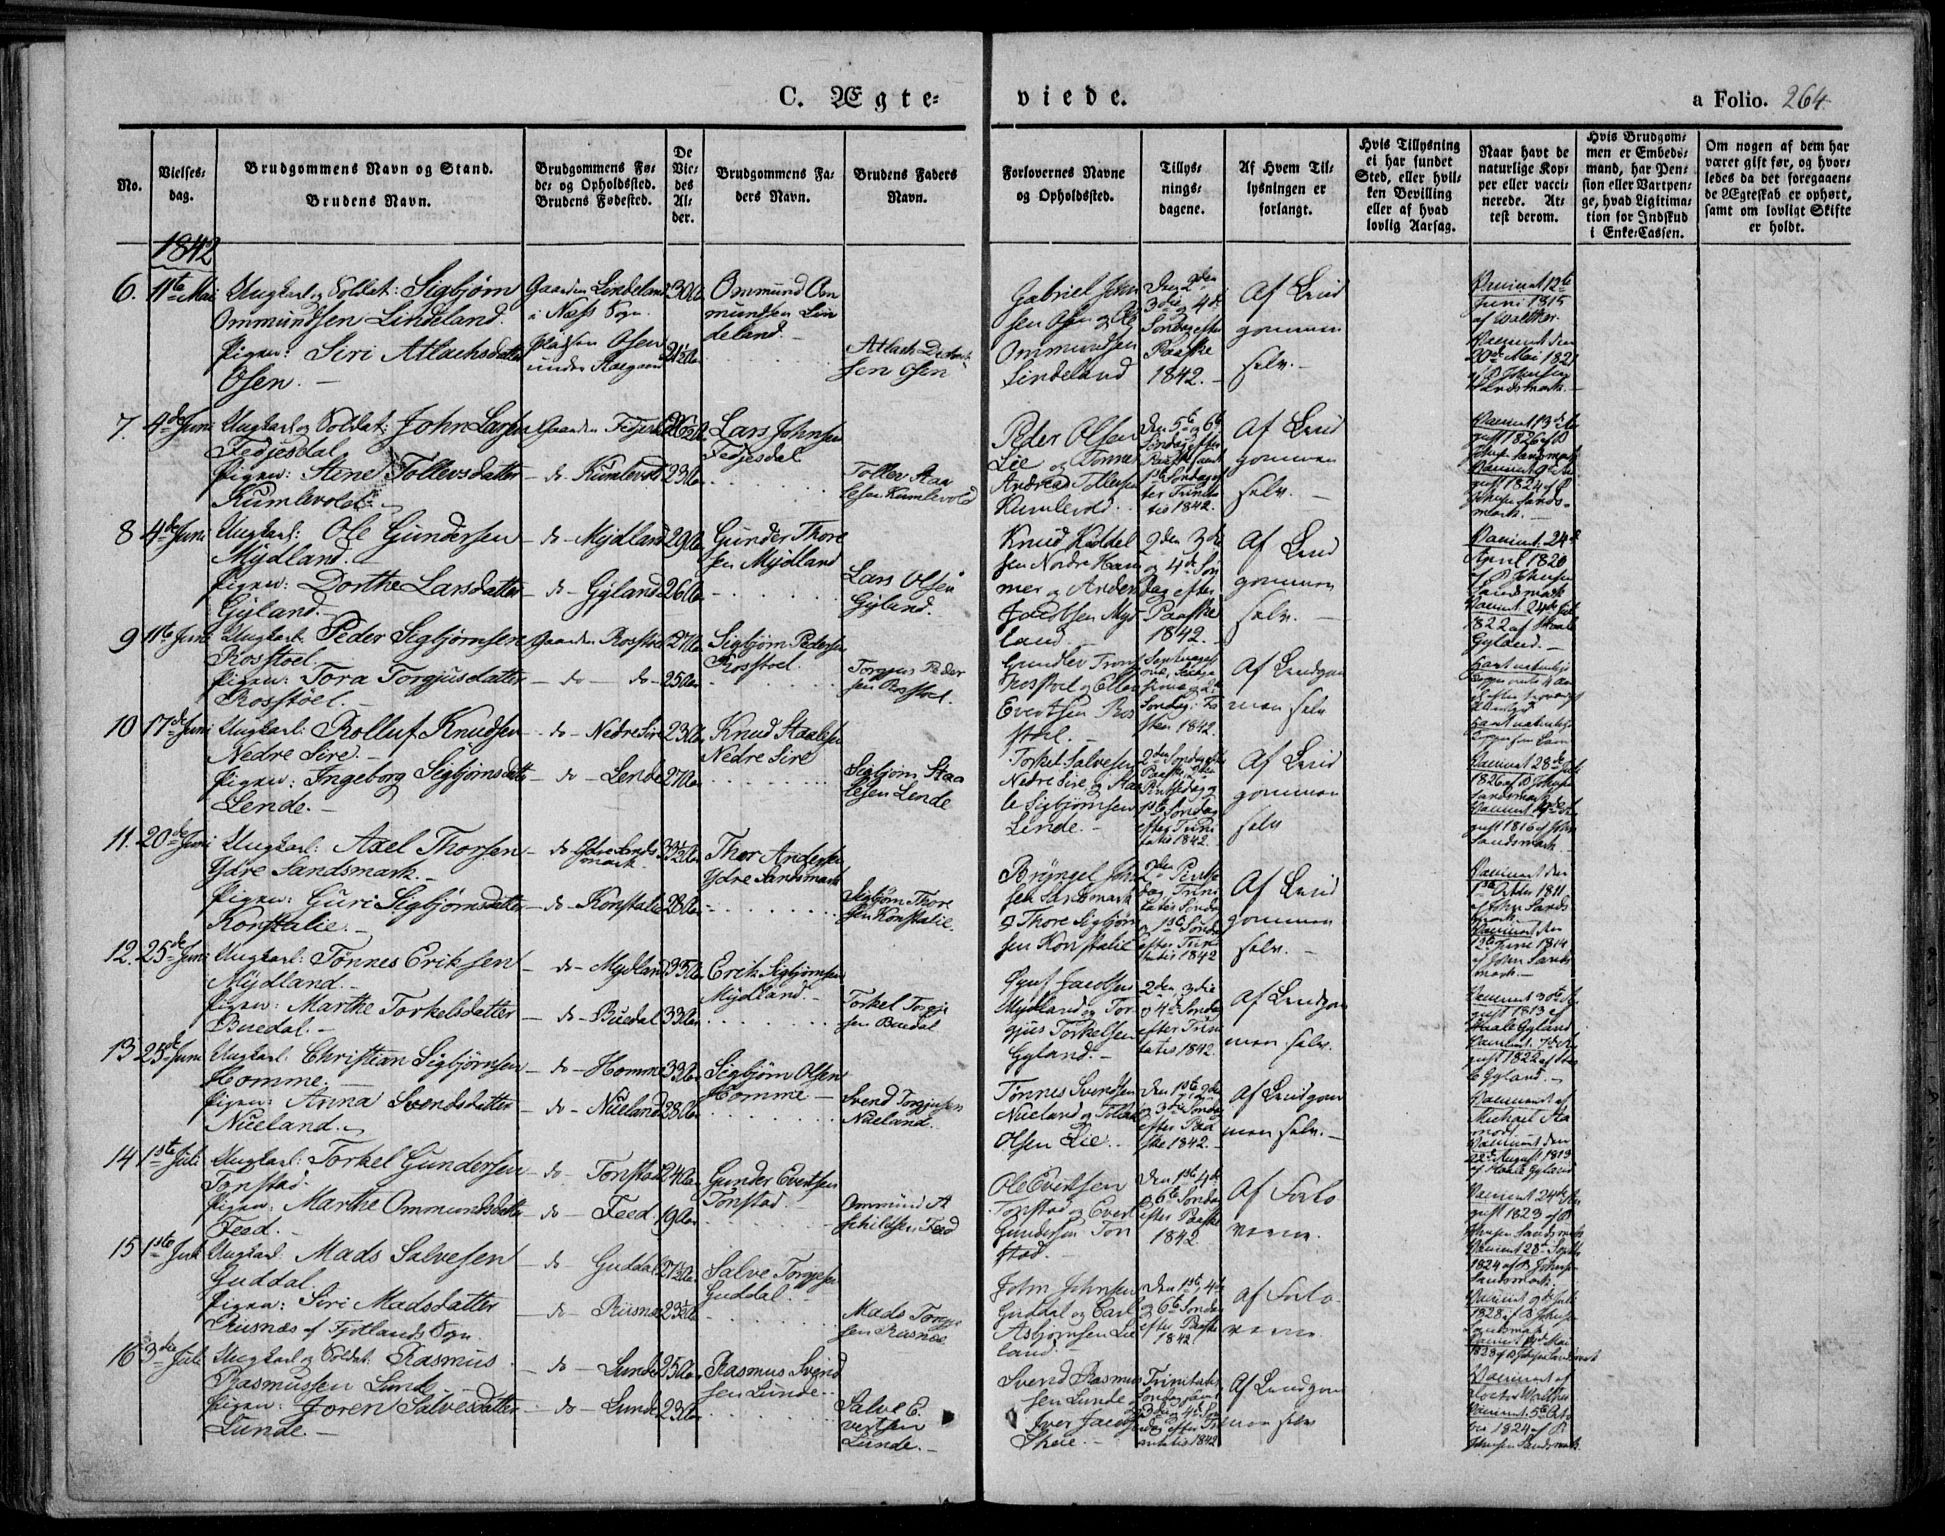 C. Ægte-
viede.
a Folio. 264.
No.
Vielses-
dag.
Brudgommens Navn og Stand.
Brudens Navn.
Brudgommens Fø-
de- og Opholdssted.
Brudens Fødested.
De
Vie-
des
Al-
der.
Brudgommens Fa-
ders Navn.
Brudens Faders
Navn.
Forlovernes Navne
og Opholdssted.
Tillys-
nings-
dagene.
Af Hvem Til-
lysningen er
forlangt.
Hvis Tillysning
ei har fundet
Sted, eller hvil-
ken Bevilling
eller af hvad
lovlig Aarsag.
Naar havt de
naturlige Kop-
per eller vacci-
nerede. At-
test derom.
Hvis Brudgom-
men er Embeds-
mand, har Pen-
sion eller Vartpen-
ge, hvad Ligitima-
tion for Indskud
i Enke-Cassen.
Om nogen af dem har
været gift før, og hvor-
ledes da det foregaaen-
de Ægteskab er ophørt,
samt om lovligt Skifte
er holdt.
1842
6. 11te Mai
Ungkarl og Soldat: Sigbjørn
Ommundsen Lindeland.
Pigen: Siri Atlachsdatter
Osen.
Gaarden Lindeland
i Næss Sogn.
Pladsen Osen
under
30 Aar
21½ Aar
Ommund Om
mundsen Lin
deland.
Atlach
sen Osen
Gabriel John
sen Osen og
Ommundsen
Lindeland
Den 2den
3die og 4de
Søndag efter
Paaske
1842.
Af Brud
gommen
selv.
Vaccineret 12te
Juni 1815
af Walther.
Vaccineret den
20de Mai 1821
af P Johnsen
Sandsmark.
7. 4de Juni
Ungkarl og Soldat: John Larsen
Fedjesdal
Pigen: Stene Tollevsdatter
Kumlevold
Gaarden
do Kumlevold
26½ Aar
23 Aar
Lars Johnsen
Fedjesdal
Tollev Staa
lesen Kumlevold
Peder Olsen
Lie og Tønnes
Andreas Tollevsen
Kumlevold.
Den 5te og 6te
Søndag efter
Paaske samt
1ste Søndag ef
ter Trinita
tis 1842.
Af Brud
gommen
selv.
Vaccineret 13de Au
gust 1826 af P
Johnsen Sandsmark
Vaccineret 9de Au
gust 1824 af P
Johnsen Sands-
mark.
8 4de Juni
Ungkarl: Ole Gundersen
Mydland.
Pigen: Dorthe Larsdatter
Gyland.
do Mydland
do Gyland
29 Aar
26 Aar
Gunder Thore
sen Mydland
Lars Olsen
Gyland.
Knud
sen Nordre Ham
mer og Anders
Jacobsen Myd
land
2den 3die
og 4de Søn
dag efter
Paaske
1842.
Af Brud
gommen
selv.
Vaccineret 24de
April 1820
af P Johnsen
Sandsmark
Vaccineret 24de Juli
1822 af Staale
Gyland.
9 11te Juni
Ungkarl: Peder Sigbjørnsen
Rosstoel.
Pigen: Tora Torgjusdatter
Rosstöel.
Gaarden Rosstoel
do do
27 Aar
25 Aar
Sigbjørn Pedersen
Rosstoel.
Torgjus Peder
sen Rosstoel.
Rosstoel og
Evertsen Ros
stoel.
Søndag i Fa
sten 1842.
Af Brudgom
men selv
10 17de Juni
Ungkarl: Rolluf Knudsen
Nedre Sire.
Pigen: Ingeborg Sigbjørnsdatter
Lende.
do Nedre Sire
do Lende
23 Aar
27 Aar
Knud Staalesen
Nedre Sire
Sigbjørn Staa
lesen Lende
Torkel Salvesen
Nedre Sire og Staa
le Sigbjørnsen
Lende.
2den Søndag efter
Paaske, 2den
Pintsedag og
1ste Søndag
efter Trini
tatis 1842.
Af Brud
gommen
selv
Vaccineret 28de Juli
1826 af P Johnsen
Sandsmark
1816 af John
Sandsmark
11. 20de Juni
Ungkarl: Axel Thorsen
Ydre Sandsmark.
Pigen: Guri Sigbjørnsdatter
Konstalie.
do Ydre Sands
mark
do Konstalie
33½ Aar
28 Aar
Thor Andersen
Ydre Sandsmark
Sigbjørn Thore
sen Konstalie.
Bryngel John
sen Sandsmark
og Thore Sigbjørn
sen Konstalie
2den Pintse
dag Trini
tatis Søndag
og 1ste Søndag
efter Trini
tatis 1842
Af Brud
gommen
selv.
Vaccineret den
1ste 1811.
af John Sands
mark.
Vaccineret den
12te Juni 1814
af John Sands
mark.
12. 25de Juni
Ungkarl: Tønnes Eriksen
Mydland.
Pigen: Marthe Torkelsdatter
Buedal.
do Mydland
do Buedal
35 Aar
33 Aar
Erik Sigbjørnsen
Mydland.
Torkel Torgju
sen Buedal
Jacobsen
Mydland og Tor
gjus Torkelsen
Gyland.
2den, 3die
og 4de Søndag
efter Trini
tatis 1842.
Af Brudgom
men selv.
Vaccineret 30te Au
gust 1813 af
Staale Gyland
Vaccineret 7de Au
gust 1822 af Staa
le Gyland.
13 25de Juni
Ungkarl: Christian Sigbjørnsen
Homme.
Pigen: Anna Svendsdatter
Nueland.
do Homme
do Nueland
33 Aar
28 Aar
Sigbjørn Olsen
Homme
Svend Torgjusen
Nueland.
Tønnes Svendsen
Nueland og Tollak
Olsen Lie.
Den 1ste, 2den
og 3die Søndag
efter Paa
ske 1842.
Af Brudgom
men selv.
Vaccineret af
Michael Sta
Vaccineret den
22de August 1819
af Staale Gyland
14 1ste Juli
Ungkarl: Torkel Gundersen
Tonstad.
Pigen: Marthe Ommundsdatter
Feed.
do Tonstad
do Feed
24 Aar
19 Aar
Gunder Evertsen
Tonstad.
Ommund A
schildsen Feed
Ole Evertsen
Tonstad og Evert
Gundersen Ton
stad.
Den 1ste, 4de
og 6te Søndag
efter Paaske
1842.
Af Forlo
verne.
Vaccineret 24de Au
gust 1823 af P.
Johnsen Sandsmark
Vaccineret 28de Septbr
1824 af P Johnsen
Sandsmark.
15 1ste Juli
Ungkarl: Mads Salvesen
Guddal.
Pigen: Siri Madsdatter
Rusnæs af Fjotlands Sogn.
do Guddal
do Rusnæs
27½ Aar
23½ Aar
Salve Torgjusen
Guddal.
Mads Torgju
sen Rusnæs
John Johnsen
Guddal og Carl
Asbjørnsen Lie
land.
Den 1ste, 4de
og 6te Søndag
efter Paaske
1842.
Af Forlo
verne.
Vaccineret 9de Juli
1828 af P Johnsen
Sandsmark
1828 af P Johnsen Sandsmark
16 3die Juli
Ungkarl og Soldat: Rasmus
Rasmussen Lunde.
Pigen: Joren Salvesdatter
Lunde.
do Lunde
do Lunde
25 Aar
23 Aar
Rasmus Svend
sen Lunde.
Salve E
vertsen
Lunde.
Svend Rasmus
sen Lunde
Iver Jacobsen
Skeie.
Trinitatis
Søndag samt
3die og 4de Søn
dag efter Tri
nitatis 1842
Af Brudgom
men selv
Vaccineret af
Doctor Walther
Vaccineret 5te Octo
ber 1824 af P.
Johnsen Sandsmark.